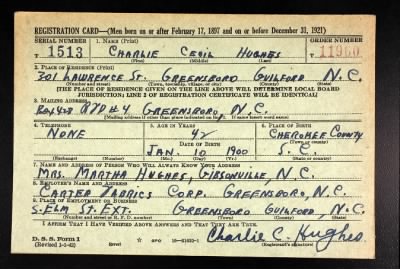 REGISTRATION CARD—(Men born on or after February 17, 1897 and on or before December 31, 1921)
SERIAL NUMBER 1. NAME (Print) ORDER NUMBER
T 1513 CHARLIE CECIL HUGHES T 11900
(First) (Middle) (Last)
2. PLACE OF RESIDENCE (Print)
301 LAWRENCE ST. GREENSBORO GUILFORD N.C.
(Number and street) (Town, township, village, or city) (County) (State)
[THE PLACE OF RESIDENCE GIVEN ON THE LINE ABOVE WILL DETERMINE LOCAL BOARD
JURISDICTION; LINE 2 OF REGISTRATION CERTIFICATE WILL BE IDENTICAL]
3. MAILING ADDRESS
BOX 428 RFD #4 GREENSBORO, N.C.
4. TELEPHONE 5. AGE IN YEARS 6. PLACE OF BIRTH
NONE 42 CHEROKEE COUNTY
DATE OF BIRTH (Town or county)
JAN. 10 1900 S.C.
(Exchange) (Number) (Mo.) (Day) (Yr.) (State or country)
7. NAME AND ADDRESS OF PERSON WHO WILL ALWAYS KNOW YOUR ADDRESS
MRS. MARTHA HUGHES, GIBSONVILLE, N.C.
8. EMPLOYER'S NAME AND ADDRESS
CARTER FABRICS CORP. GREENSBORO, N.C.
9. PLACE OF EMPLOYMENT OR BUSINESS
S. ELM ST. EXT. GREENSBORO GUILFORD N.C.
(Number and street or R. F. D. number) (Town) (County) (State)
I AFFIRM THAT I HAVE VERIFIED ABOVE ANSWERS AND THAT THEY ARE TRUE.
D. S. S. Form 1 Charlie C. Hughes
(Revised 1-1-42) (over) GPO 16-21630-2 (Registrant's signature)